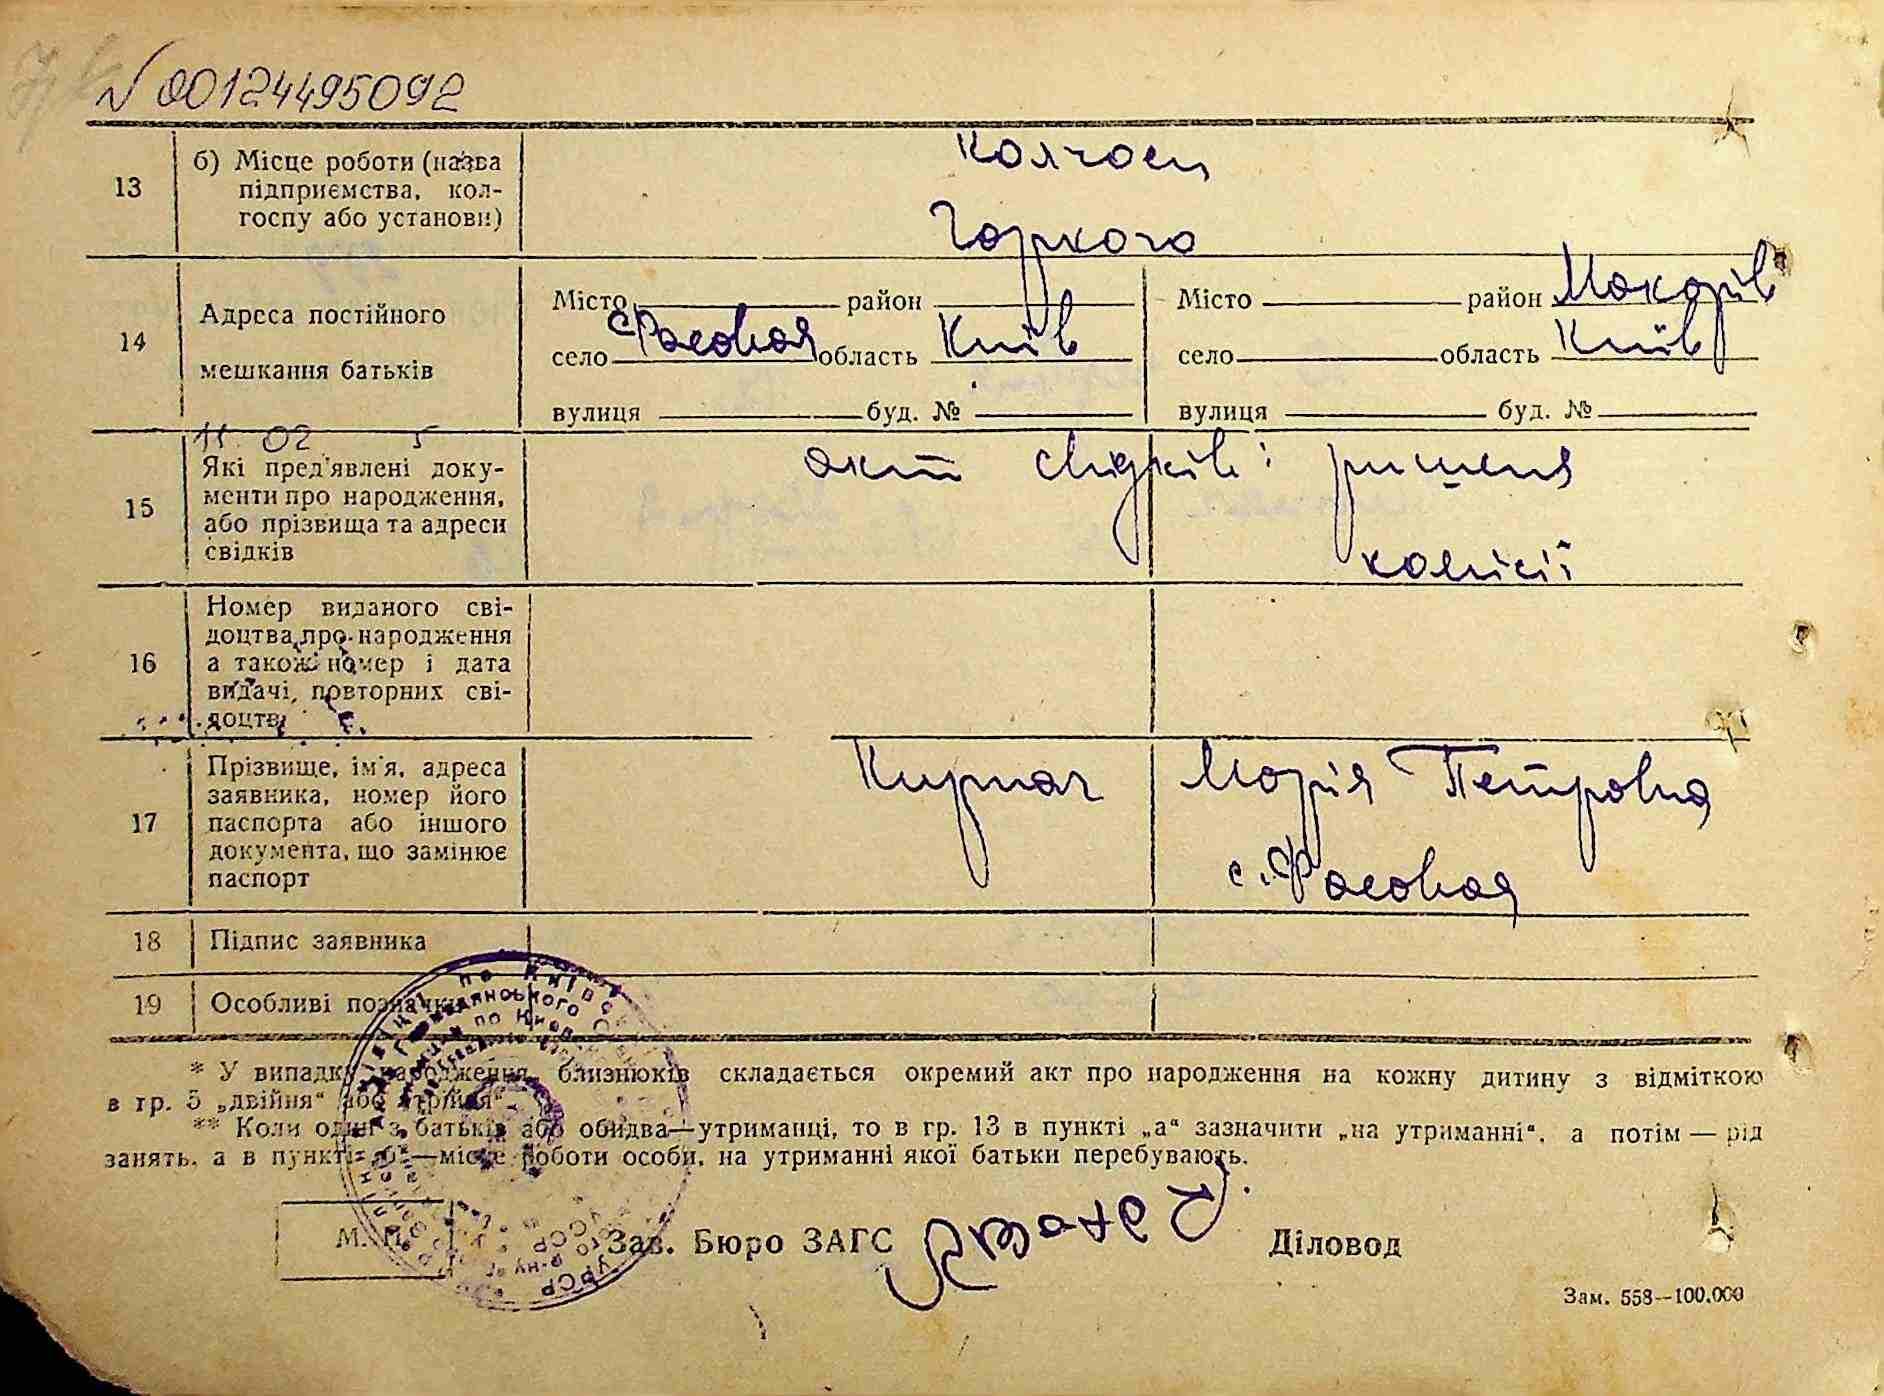 N 00124495092
13
б) Місце роботи (назва
підприємства, кол-
госпу або установи)
Колгосп
Горкого
14
Адреса постійного
мешкання батьків
Місто район
село с. Фасовая область Київ
вулиця буд. №
Місто район Макарів
село область Київ
вулиця буд. №
11 02 5
15
Які пред'явлені доку-
менти про народження,
або прізвища та адреси
свідків
акт свідків і ришеня
комісії
16
Номер виданого сві-
доцтва про народження
а також номер і дата
видачі, повторних сві-
доцтв
17
Прізвище, ім'я, адреса
заявника, номер його
паспорта або іншого
документа, що замінює
паспорт
Кирпач Марія Петровна
с. Фасовая
18 Підпис заявника
19 Особливі позначки
* У випадку народження близнюків складається окремий акт про народження на кожну дитину з відміткою
в гр. 5 „двійня“ або „трійня“
** Коли один з батьків або обидва—утриманці, то в гр. 13 в пункті „а“ зазначити „на утриманні“, а потім — рід
занять, а в пункті „б“—місце роботи особи, на утриманні якої батьки перебувають.
М. П. Зав. Бюро ЗАГС Діловод
Зам. 558—100.000